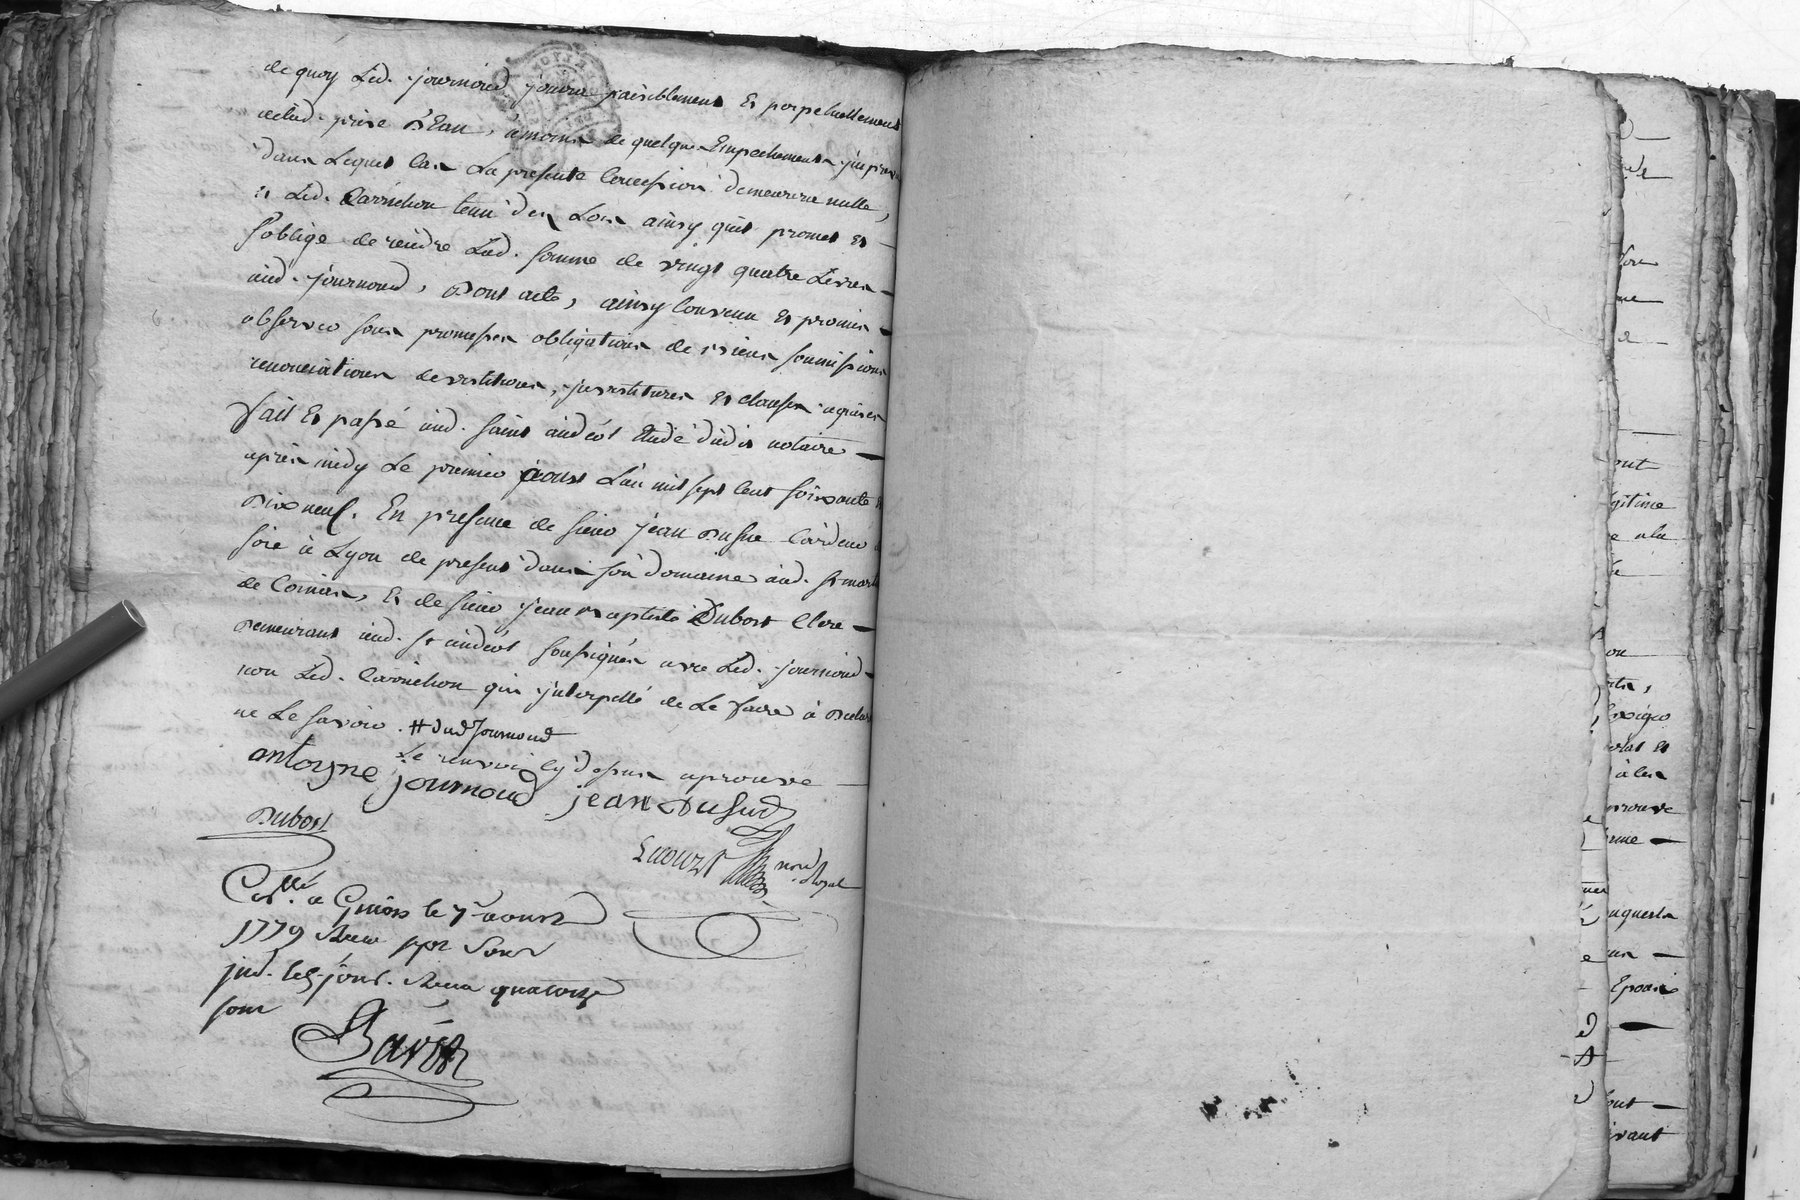 de quoy Led. journoud jouira paisiblement et perpetuellement
delad. prise d'Eau, amoins de quelques Empechements jmprevus
dans Lequel Cas La presente Concession demeurera nulle,
et Led. Carrichon tenu des Lors ainsy quil promet et
soblige de rendre Lad. somme de vingt quatre Livres
aud. journoud, Dont acte, ainsy Convenu et promis
observer sous promesses obligations de biens soumissions
renonciations devestitions, jnvestitures et clauses requises
fait Et passé aud. saint andéol Etude dudit notaire
apres midy Le premier aoust L'an mil sept Cent soixante
Dix neuf. En presence de sieur jean Cardeur
soie à Lyon de present dans son domaine aud. st
de Cornas, et de sieur jean Baptiste Dubost Clerc
Demeurant aud. st andéol soussignés avec Led. journoud
non Led. Carrichon qui jnterpellé de Le faire à Declaré
ne Le savoir. # dud journoud
Le renvoi cy dessus aprouvé
antoyne journoud jean
Dubost
royal
a Givors le 7e aoust
1779 Receu sept Sous
jnd. Receu quatorze
sous